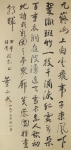 九嶷山上白雲飛帝子乘風下
翠微斑竹一枝千滴淚紅霞萬朵
百重衣洞庭波湧連天雪長島人歌動
地詩我欲因之夢寥廓芙蓉國裏盡
朝暉